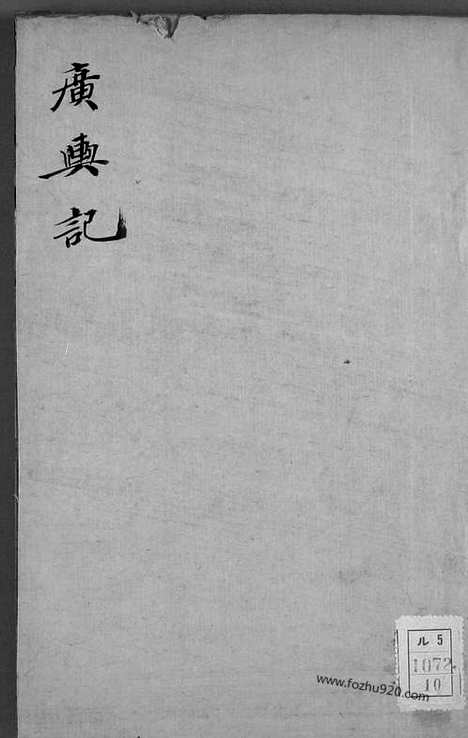 廣輿記
ル 5
1072
10
www.fozhu920.com